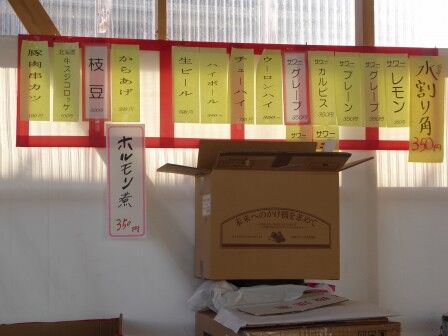 水割り角
350円
サワー
レモン
350円
サワー
グレープ
350円
サワー
プレーン
350円
サワー
カルピス
350円
サワー
グレープ
350円
ウーロンハイ
チューハイ
ハイボール
生ビール
からあげ
枝豆
北海道
牛スジコロッケ
豚肉串カツ
サワー
サワー
ホルモン煮
350円
本来へのかけ橋を求めて